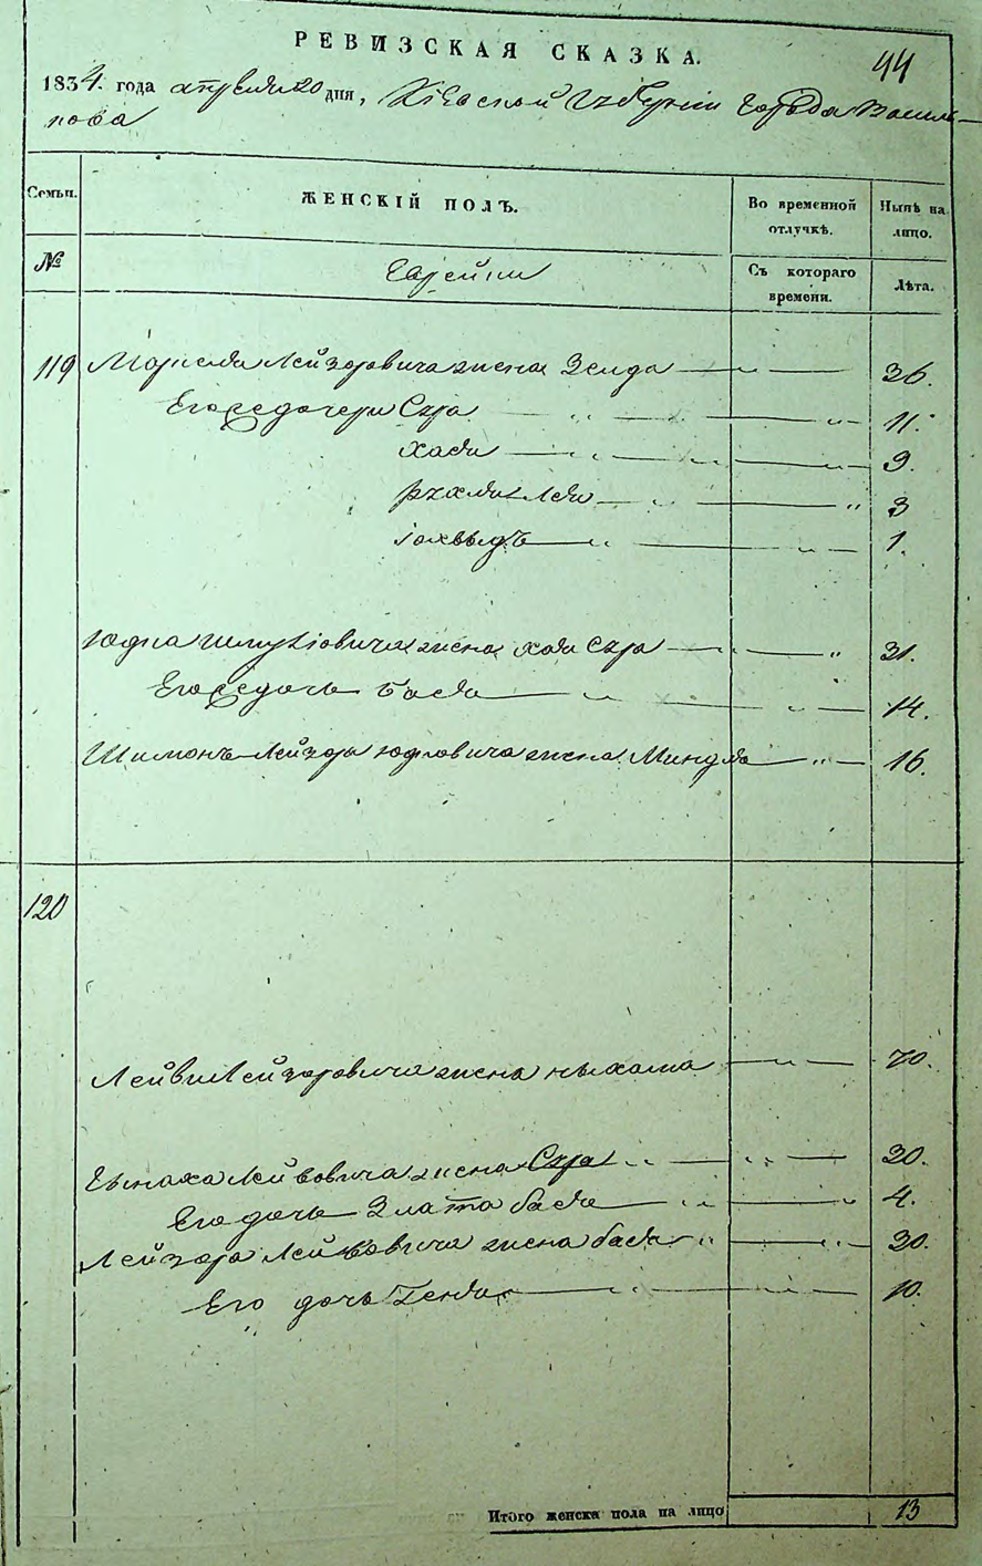 44
РЕВИЗСКАЯ СКАЗКА.
1834. года апреля 20 дня, Кіевской Губерніи города Василь-
кова
Семьи. ЖЕНСКІЙ ПОЛЪ. Во временной отлучкѣ. Нынѣ на лицо.
№ Еврейки Съ котораго времени. Лѣта.
119 Лейзоровича жена Зелда — „ — 36.
Его дочери Сура — „ — „ — 11.
Хая — „ — „ — 9.
Рухля Лея — „ — „ 3
Іохвыдъ — „ — „ — 1.
Юдка Шмулiовича жена Хая Сура — „ — „ 31.
Его дочь Бася — „ — „ — 14.
Шимонъ Лейзора Юдковича жена Миндля — „ — 16.
120
Лейви Лейзоровича жена Ныхама — „ — 70.
Лейвовича жена Сура „ — „ — 30.
Его дочь Злата Бася — „ — „ 4.
Лейзора Лейвовича жена Бася „ — „ — 30.
Его дочь Гендя — „ — „ — 10.
Итого женска пола на лицо 13